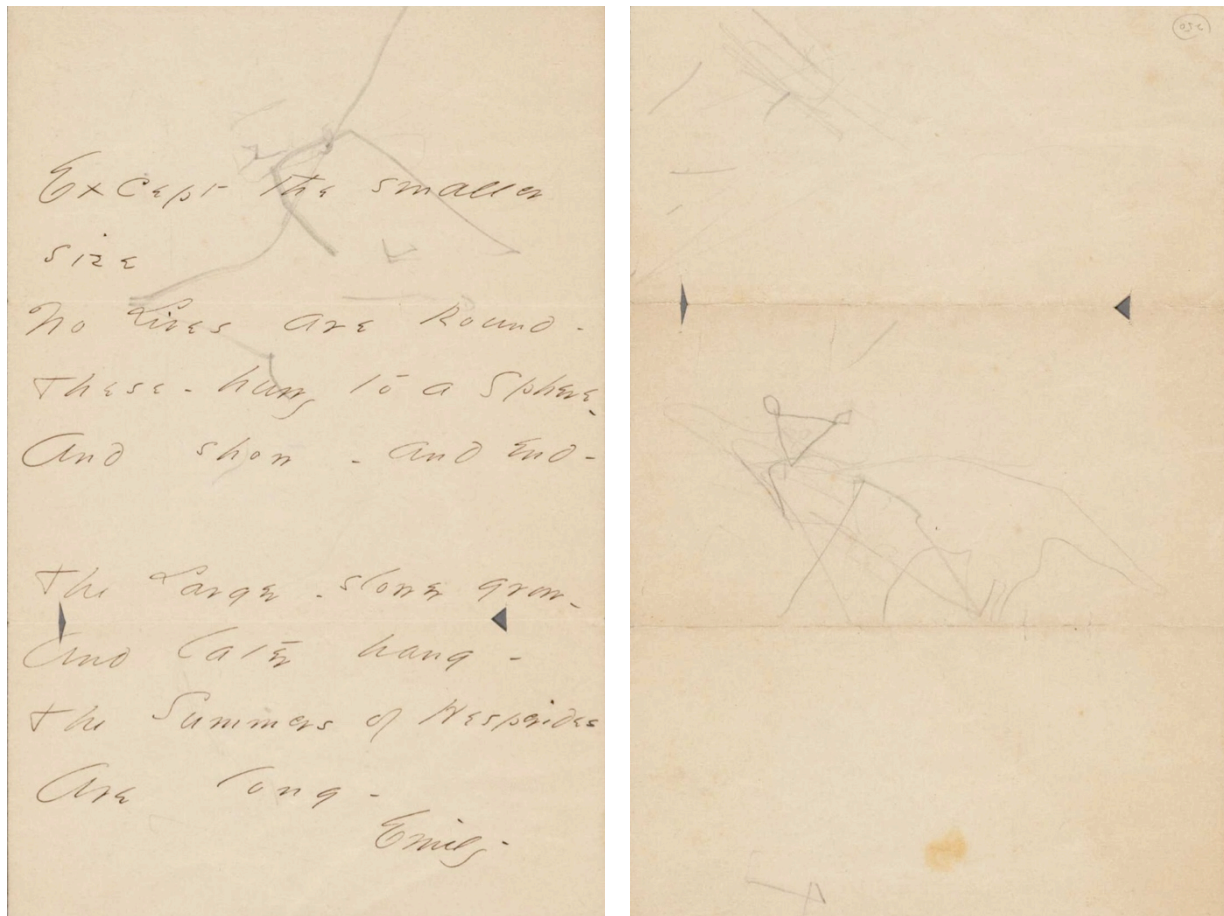 Except the smaller
size
No Lives are Round -
These - hurry to a Sphere -
And show - and End -
The Larger - slower grow -
And later hang -
The Summers of Hesperides
Are long -
Emily -